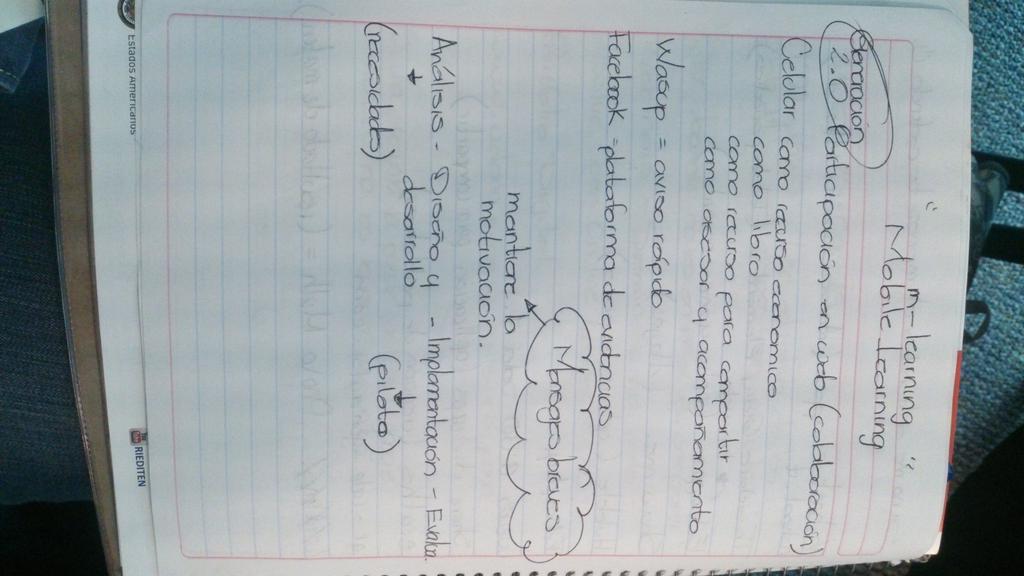 " m-learning "
Mobile Learning
Generación
2.0 Participación en web (colaboración)
Celular como recurso economico
como libro
como recurso para compartir
como asesor y acompañamiento
Wasap = aviso rápido
Facebook = plataforma de evidencias
Mensajes breves
mantiene la
motivación.
Análisis - Diseño y - Implementación - Evalua
desarrollo
(necesidades) (piloteo)
Estados Americanos
RIEDITEN